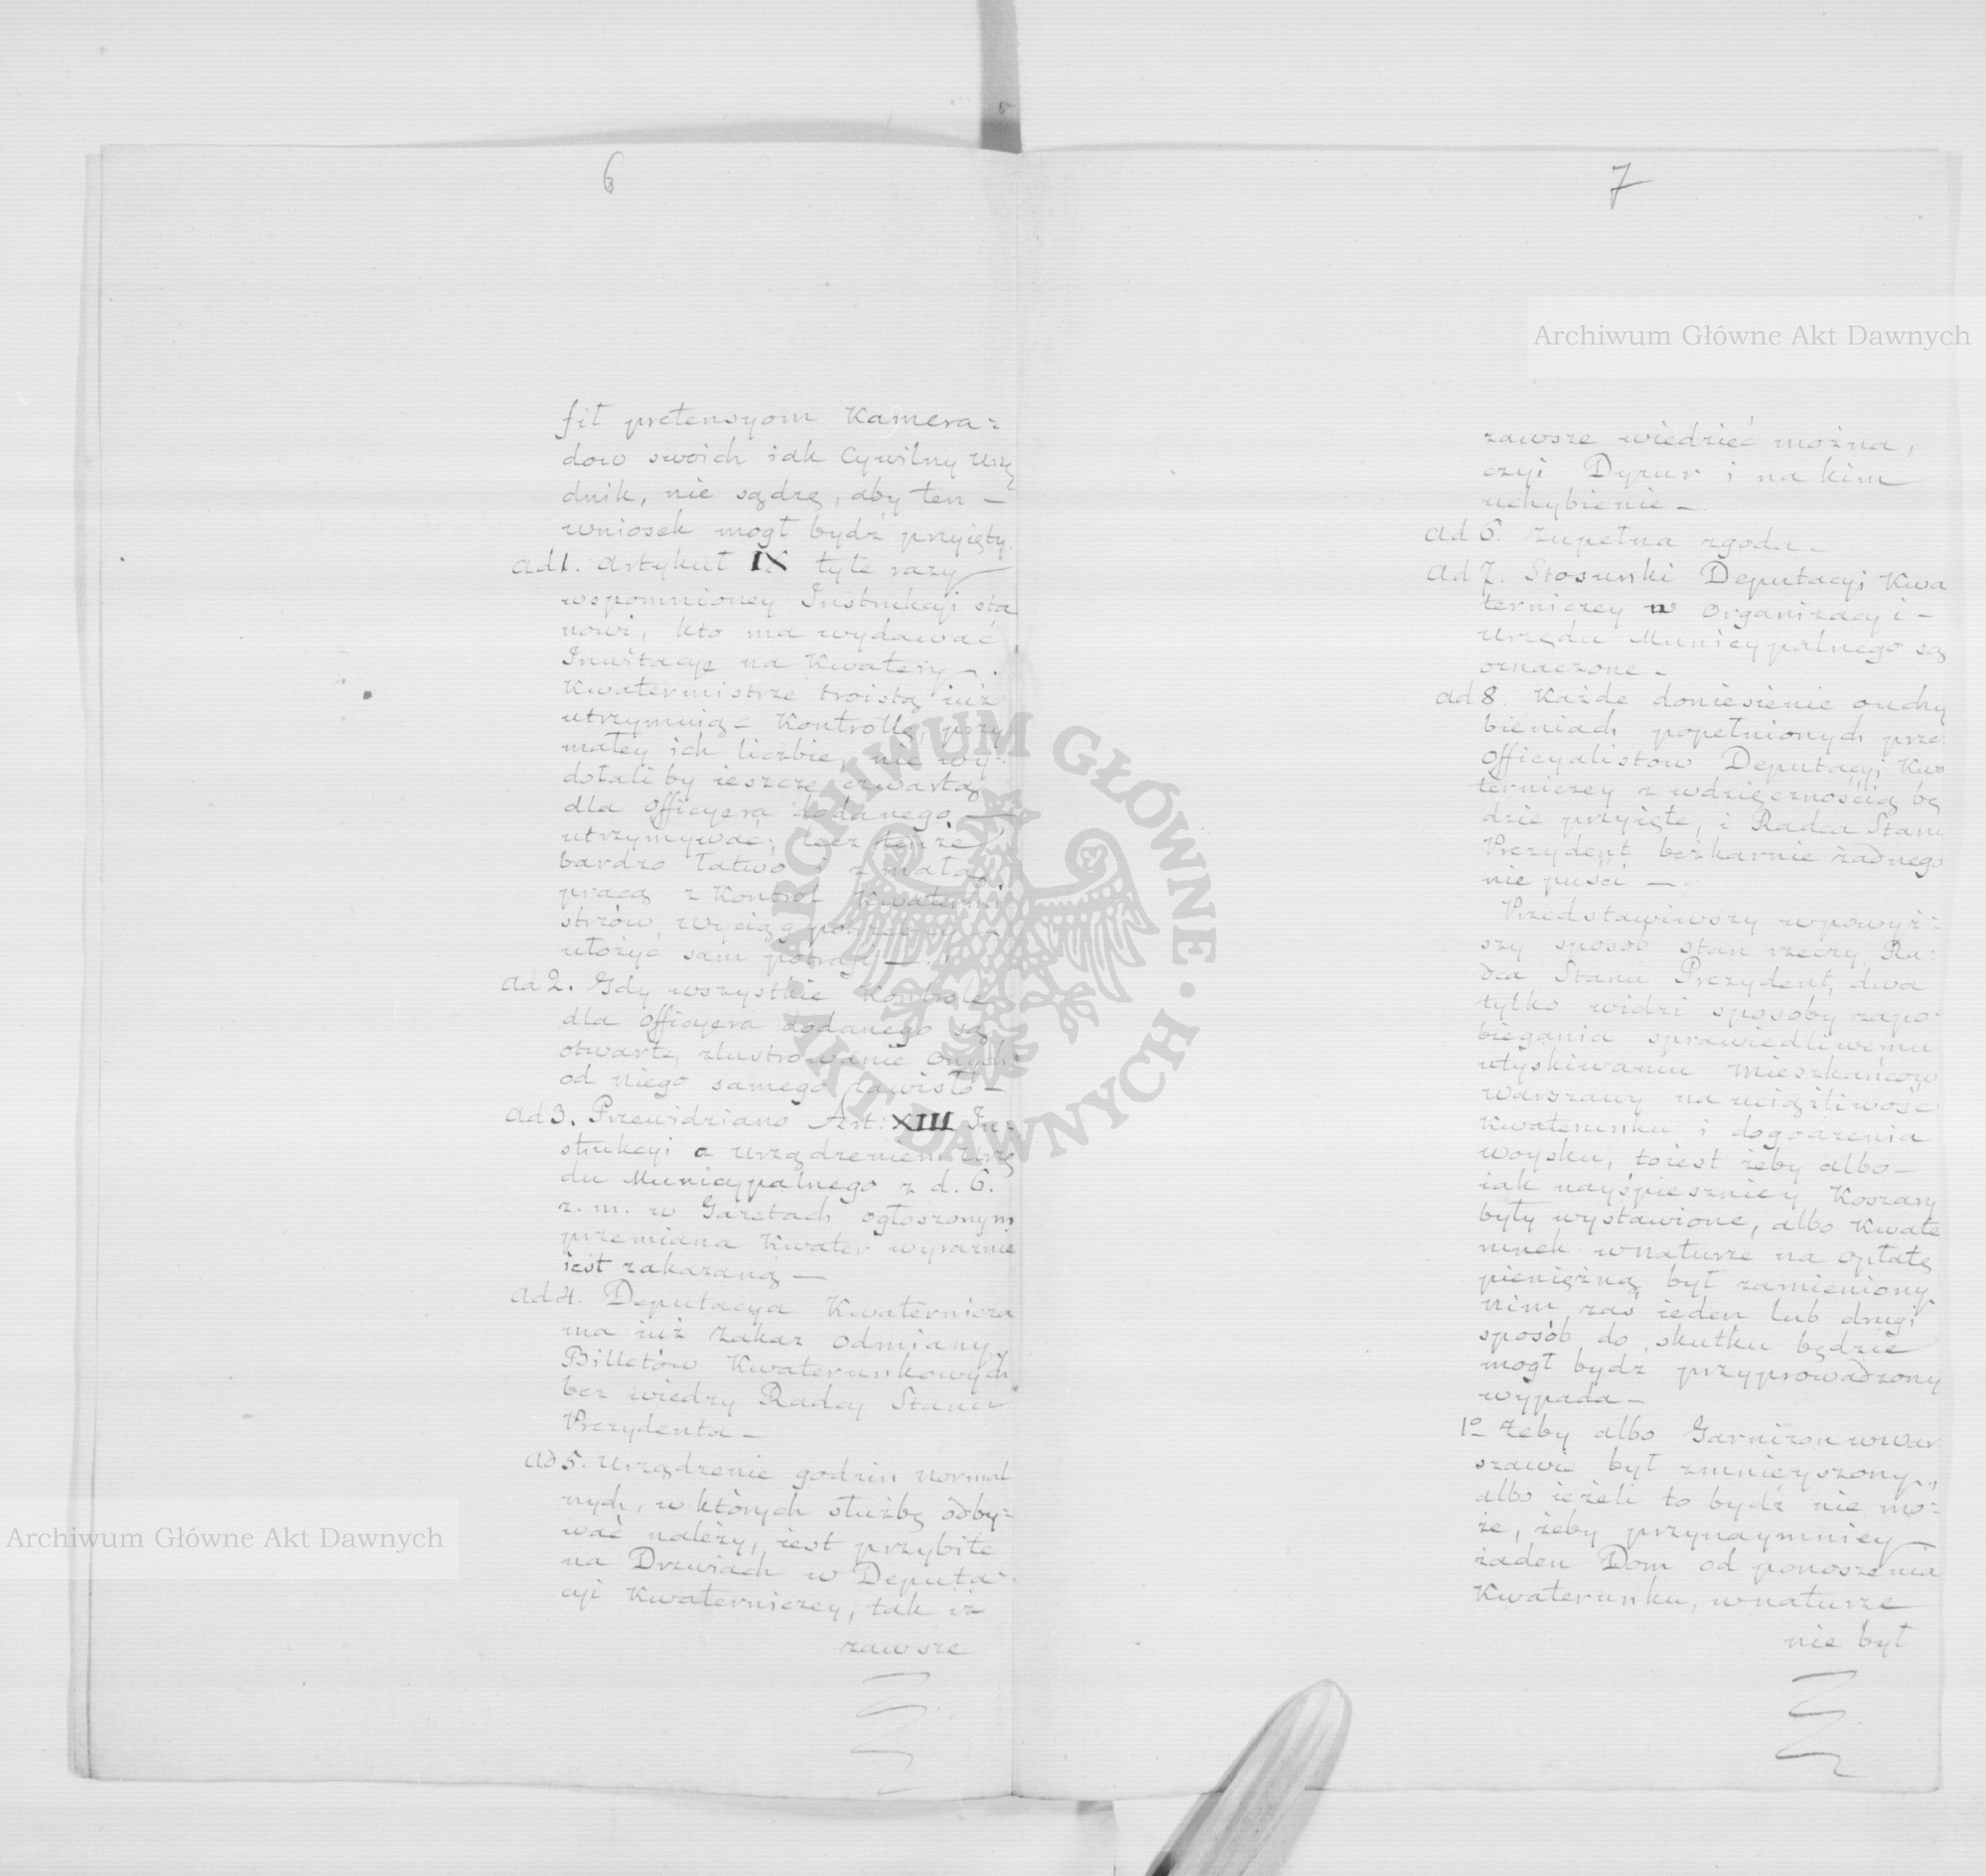 6
fił pretensyom Kamera=
dow swoich iak Cywilny Urzę
dnik, nie sądzę, aby ten —
wniosek mogł bydź przyięty.
ad 1. Artykuł IX tyle razy
wspomnioney Instrukcyi sta
nowi, kto ma wydawać
na Kwatery —.
Kwatermistrze troistą iuż
utrzymuią = Kontrollę, przy
małey ich liczbie, nie wy=
dołali by ieszcze czwartą
dla Officyera dodanego —
utrzymywać; lecz tenże,
bardzo łatwo i z małą
pracą z Kontrol Kwatermi
strzów, wyciąg
ułożyć sam potrafi —.
ad 2. Gdy wszystkie Kontrole
dla Officyera dodanego są
otwarte, zlustrowanie onych
od niego samego zawisło —
ad 3. Przewidziano Art: XIII In=
strukcyi a urządzeniem Urzę
du Municypalnego z d. 6.
z. m. w Gazetach ogłoszonym
przemiana Kwater wyraźnie
iest zakazaną —
ad 4. Deputacya Kwaternicza
ma iuż zakaz odmiany
Billetów Kwaterunkowych
bez wiedzy Radcy Stanu
Prezydenta —
ad 5. Urządzenie godzin normal
nych, w których służbę odby=
wać należy, iest przybite
na Drzwiach w Deputa=
cyi Kwaterniczey, tak iż
zawsze
7
zawsze wiedzieć można,
czyi Dyżur i na kim
uchybienie —.
ad 6. Zupełna zgoda —
ad 7. Stosunki Deputacyi Kwa
terniczey w Organizacyi —
Urzędu Municypalnego są
oznaczone —
ad 8. Każde doniesienie o uchy
bieniach popełnionych prze
Officyalistow Deputacyi Kwa
terniczey z wdzięcznością bę
dzie przyięte, i Radca Stanu
Prezydent bezkarnie żadnego
nie puści —.
Przedstawiwszy w powyż=
szy sposób stan rzeczy Ra=
dca Stanu Prezydent, dwa
tylko widzi sposoby zapo=
biegania sprawiedliwemu
utyskiwaniu Mieszkańcow
Warszawy na uciążliwość
Kwaterunku i dogodzenia
woysku, to iest żeby albo —
iak nayśpieszniey Koszary
były wystawione, albo Kwate
runek w naturze na opłatę
pieniężną był zamieniony
nim zaś ieden lub drugi
sposób do skutku będzie
mogł bydz przyprowadzony
wypada —
1o żeby albo Garnizon w War
szawie był zmnieyszony,
albo ieżeli to bydź nie mo=
że, żeby przynaymniey —
żaden Dom od ponoszenia
Kwaterunku, w naturze
nie był
Archiwum Główne Akt Dawnych
Archiwum Główne Akt Dawnych
ARCHIWUM GŁÓWNE · AKT DAWNYCH ·